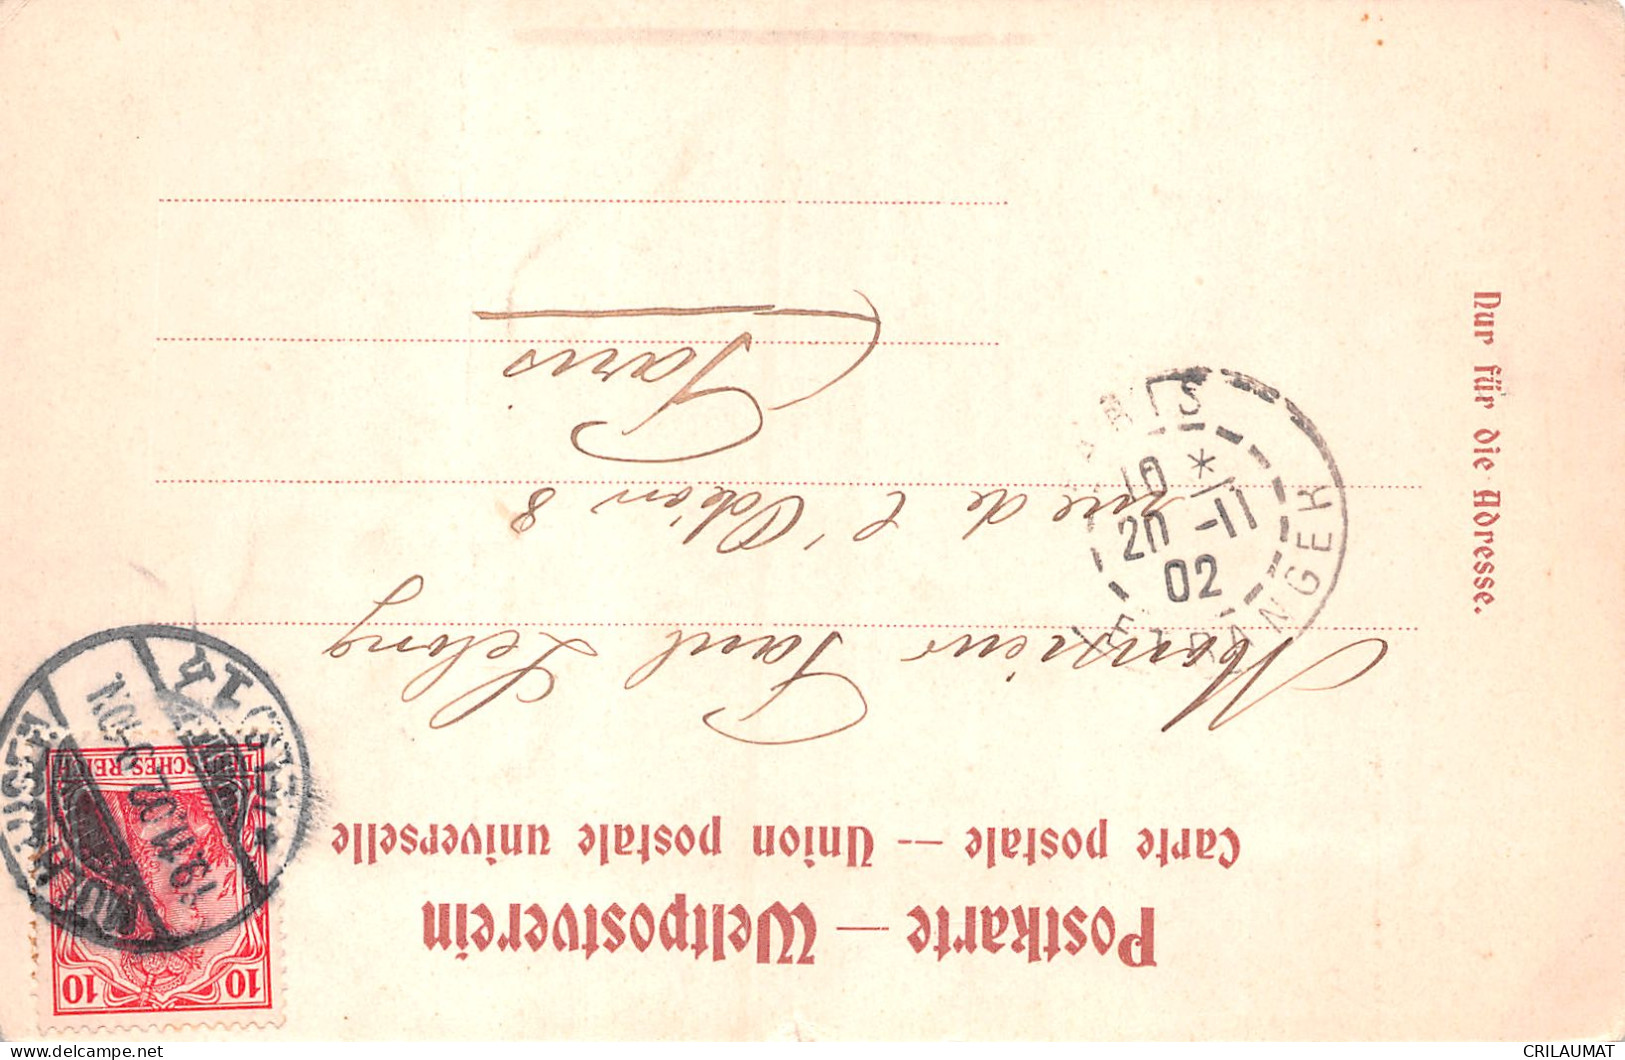 Postkarte — Weltpostverein
Carte postale -- Union postale universelle
Monsieur Paul Lelong
rue de l'Odéon 8
Paris
Nur für die Adresse.
PARIS
10 *
20 -11
02
ETRANGER
MÜLHAUSEN
(ELS.)
DEUTSCHES REICH
10 10
CRILAUMAT